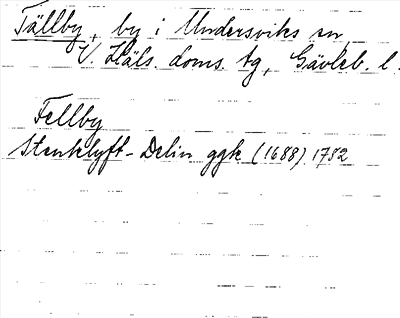 Tällby, by i Undersviks sn,
V. Häls. doms. tg, Gävleb. l.
Fellby
Stenklyft-Delin ggk (1688) 1782